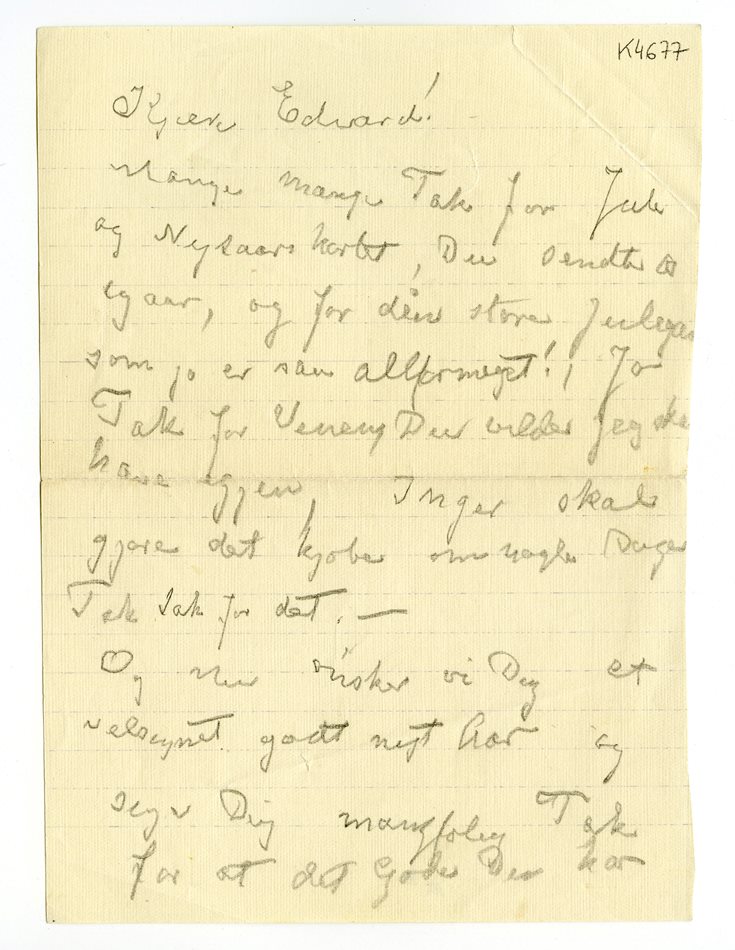 K4677
Kjære Edvard!
Mange mange Tak for Jule
og Nytaarskortet, Du sendte
igaar, og for den store
som jo er saa altfor meget!, Ja
Tak for Du vilde jeg skal
have igjen, Inger skal
gjøre det kjøbe om nogle Dage
Tak Tak for det. —
Og nu ønsker vi Dig et
velsignet godt nyt Aar og
siger Dig mangfoldig Tak
for at det Gode Du har